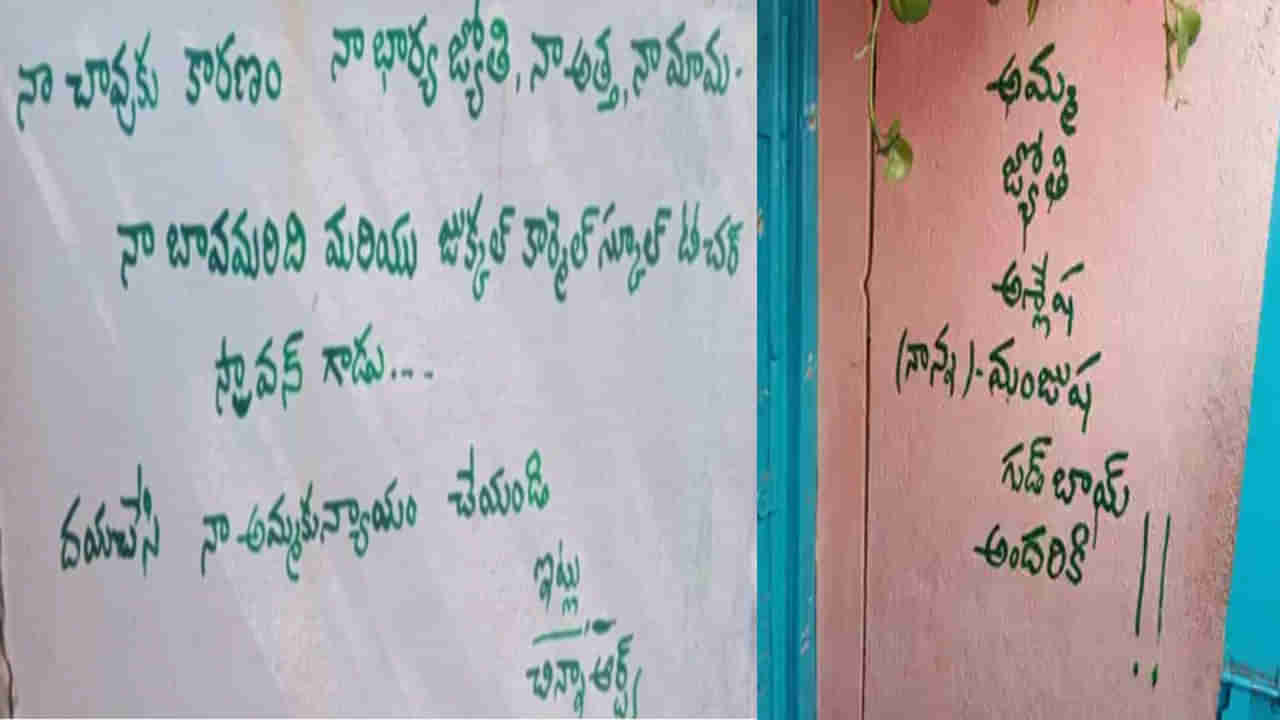 నా చావుకు కారణం నా భార్య జ్యోతి, నా అత్త, నా మామ.
నా బావమరిది మరియు జుక్కల్ కార్మెల్ స్కూల్ టీచర్
స్రావన్ గాడు....
దయచేసి నా అమ్మకు న్యాయం చేయండి
ఇట్లు
చిన్నా ఆర్ట్స్
అమ్మ
జ్యోతి
అశ్లేష
(నాన్న) - మంజుష
గుడ్ బాయ్
అందరికి !!